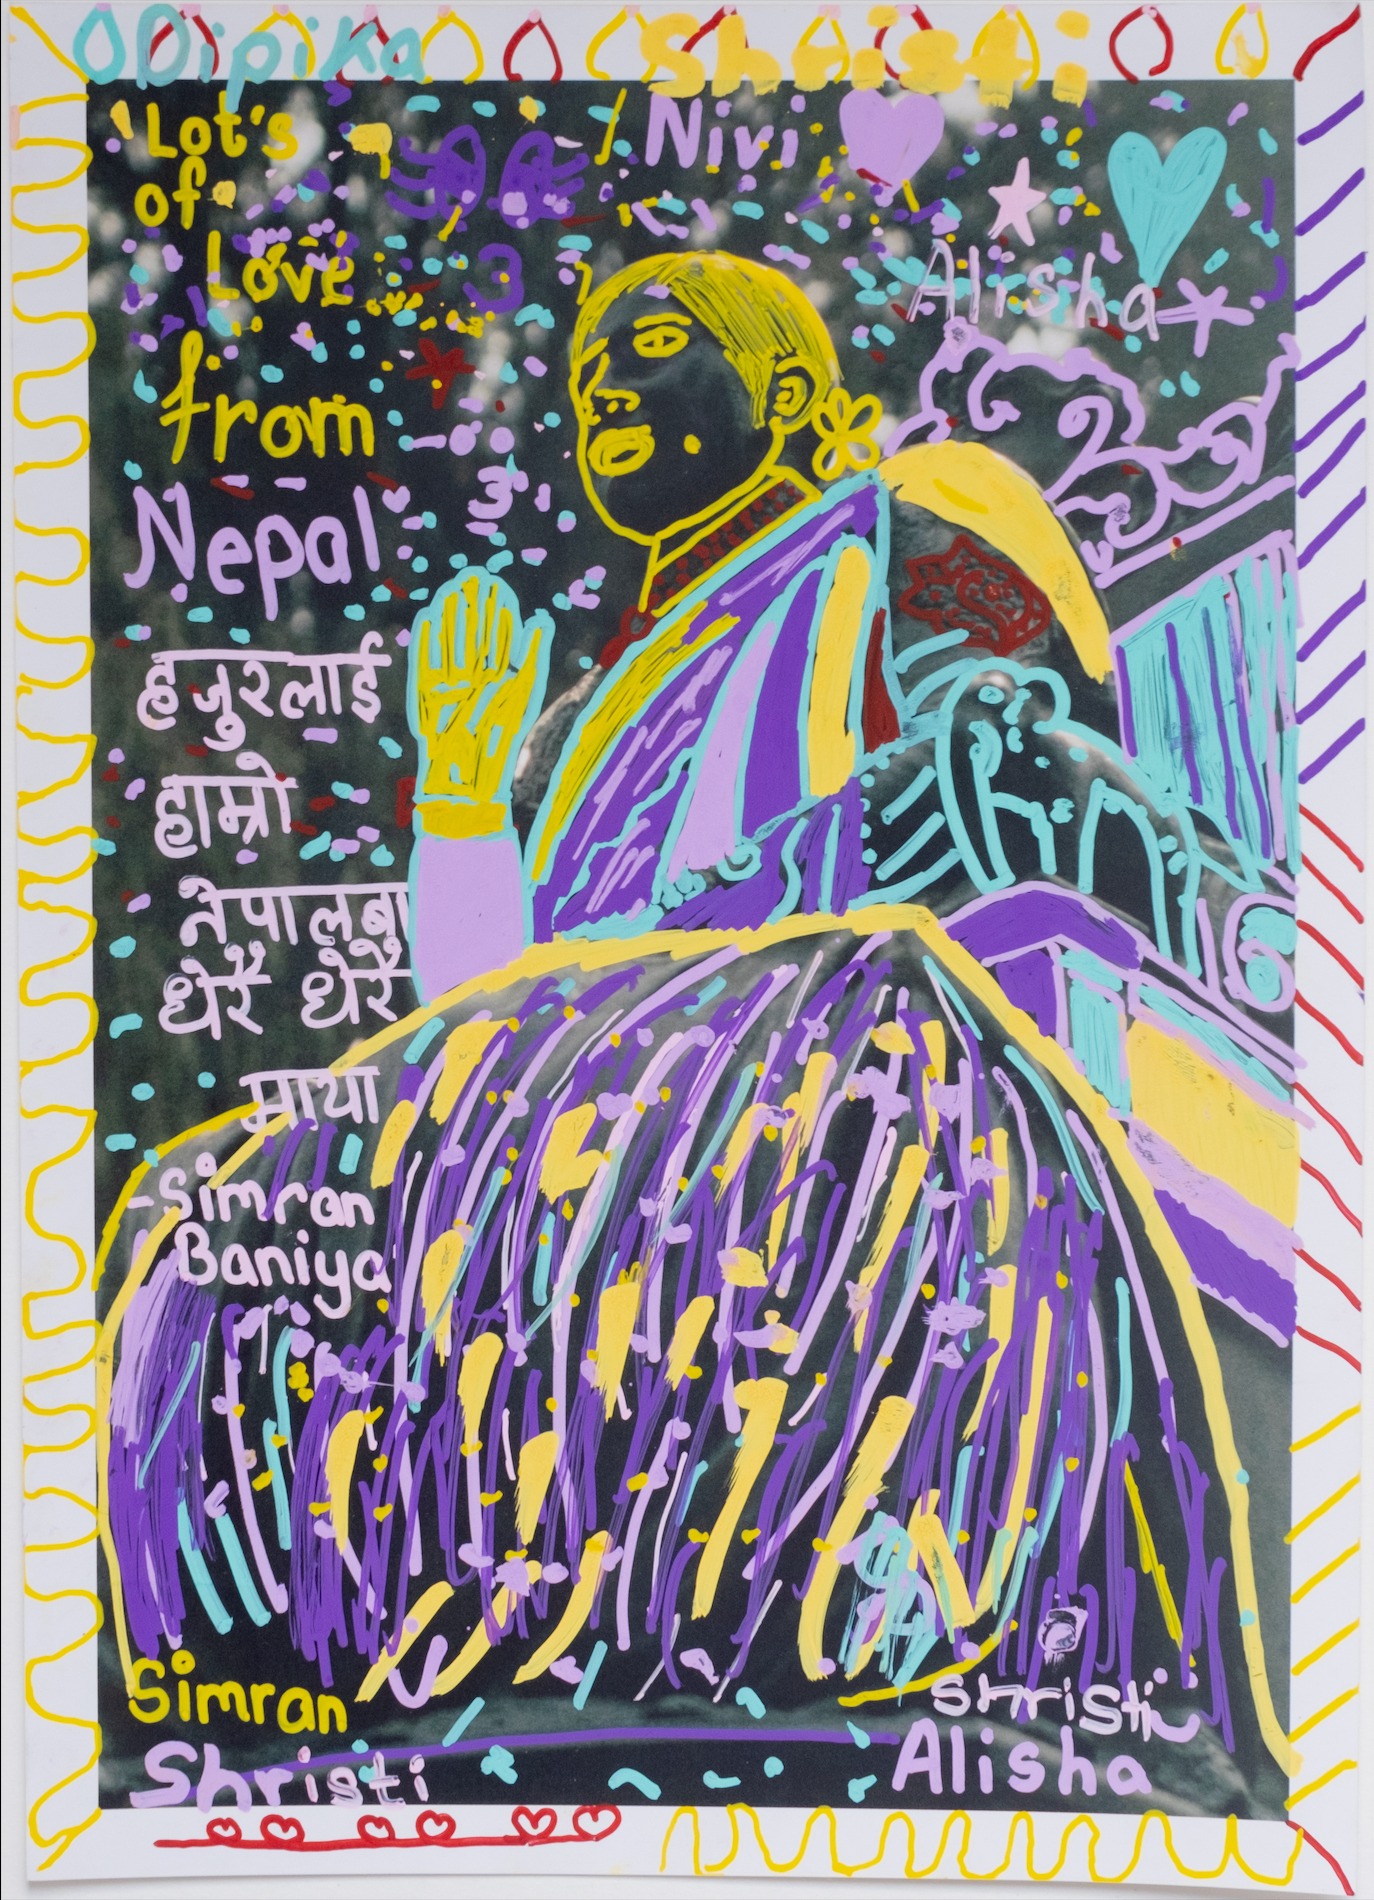 Dipika
Shristi
Lot's
of
Love
from
Nepal
Nivi
Alisha
हजुरलाई
हाम्रो
नेपालबा
धेरै धेरै
माया
-Simran
Baniya
Simran
Shristi
Shristi
Alisha